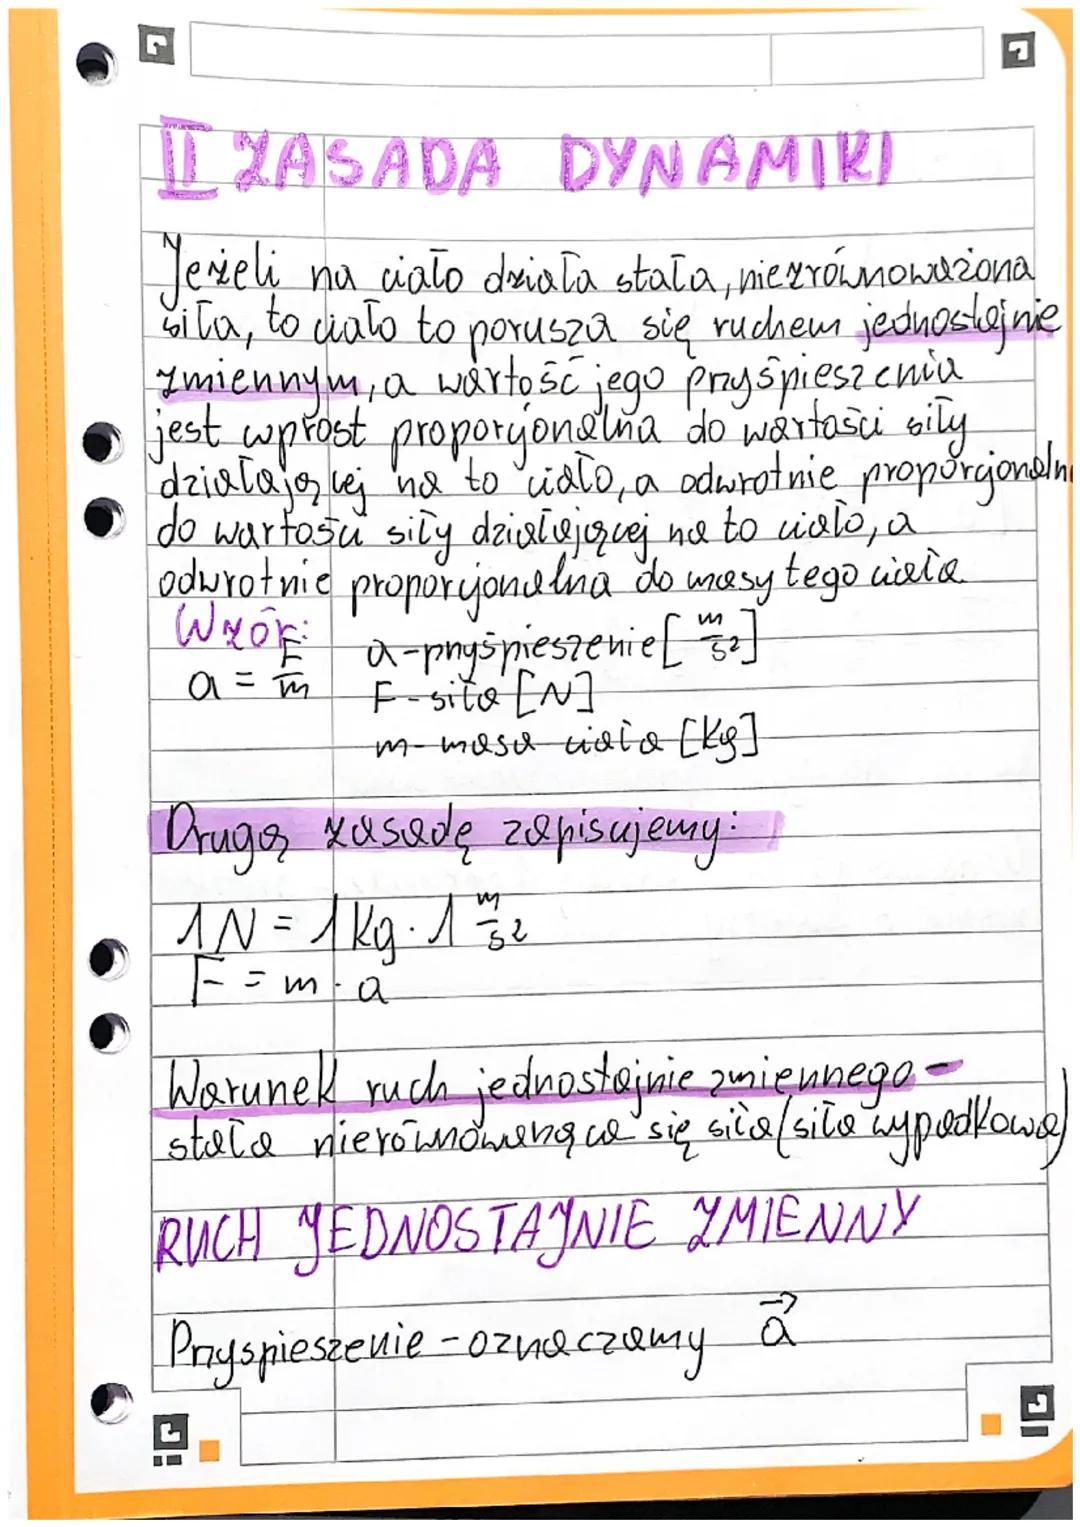 II ZASADA DYNAMIKI
Jeżeli na ciało działa stała, niezrównoważona
siła, to ciało to porusza się ruchem jednostajnie
zmiennym, a wartość jego przyśpieszenia
jest wprost proporcjonalna do wartości siły
działającej na to ciało, a odwrotnie proporcjonaln
do wartości siły działającej na to ciało, a
odwrotnie proporcjonalna do masy tego ciała
Wzór:
a = F/m
a - przyśpieszenie [m/s²]
F - siła [N]
m - masa ciała [kg]
Drugą zasadę zapisujemy:
1N = 1kg · 1 m/s²
F = m · a
Warunek ruch jednostajnie zmiennego -
stała nierównoważąca się siła (siła wypadkowa)
RUCH JEDNOSTAJNIE ZMIENNY
Przyspieszenie - oznaczamy a⃗